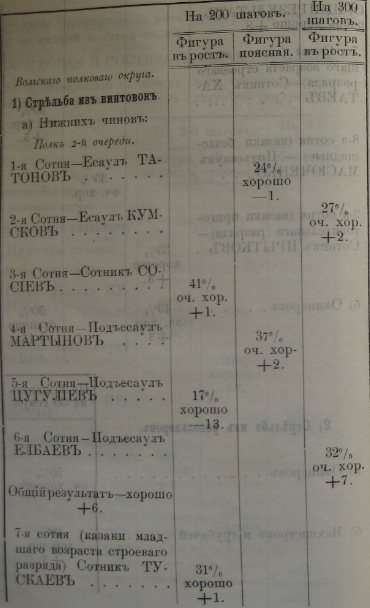 На 200 шаговъ. На 300 шаговъ.
Фигура въ ростъ. Фигура поясная. Фигура въ ростъ.
Волжскаго полковаго округа.
1) Стрѣльба изъ винтовокъ
а) Нижнихъ чиновъ:
Полкъ 2-й очереди.
1-я Сотня—Есаулъ ТА-
ТОПОВЪ . . . . . . 24% хорошо —1.
2-я Сотня—Есаулъ КУМ-
СКОВЪ . . . . . . 27% оч. хор. +2.
3-я Сотня—Сотникъ СО-
СІЕВЪ . . . . . . . 41% оч. хор. +1.
4-я Сотня—Подъесаулъ
МАРТЫНОВЪ . . . . 37% оч. хор- +2.
5-я Сотня—Подъесаулъ
ЦУГУЛІЕВЪ . . . . . 17% хорошо —13.
6-я Сотня—Подъесаулъ
ЕЛБАЕВЪ . . . . . . 32% оч. хор. +7.
Общій результатъ—хорошо
+6.
7-я сотня (казаки млад-
шаго возраста строеваго
разряда) Сотникъ ТУ-
СКАЕВЪ . . . . . . . 31% хорошо +1.